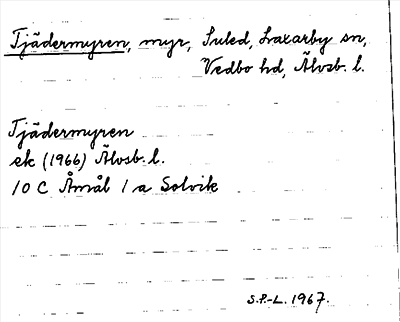 Tjädermyren, myr, Suled, Laxarby sn,
Vedbo hd, Älvsb. l.
Tjädermyren
ek (1966) Älvsb. l.
10 C Åmål 1 a Solvik
S.P.-L. 1967.